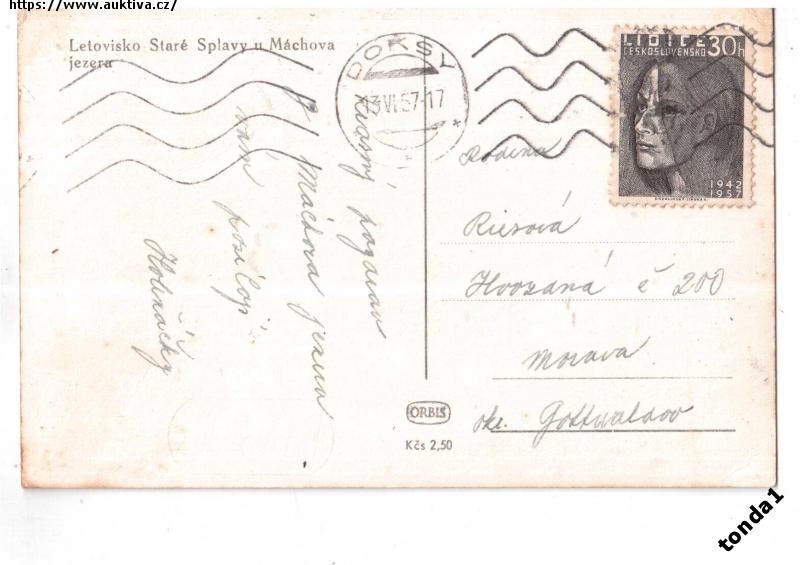 https://www.auktiva.cz/
Letovisko Staré Splavy u Máchova
jezera
DOKSY
3 VI.57-17
LIDICE
ČESKOSLOVENSKO 30h
1942
1957
Krásný pozdrav
Máchova jezera
vám posílají
Rodina
Hvozdná č 200
Morava
okr. Gottwaldov
ORBIS
Kčs 2,50
tonda1